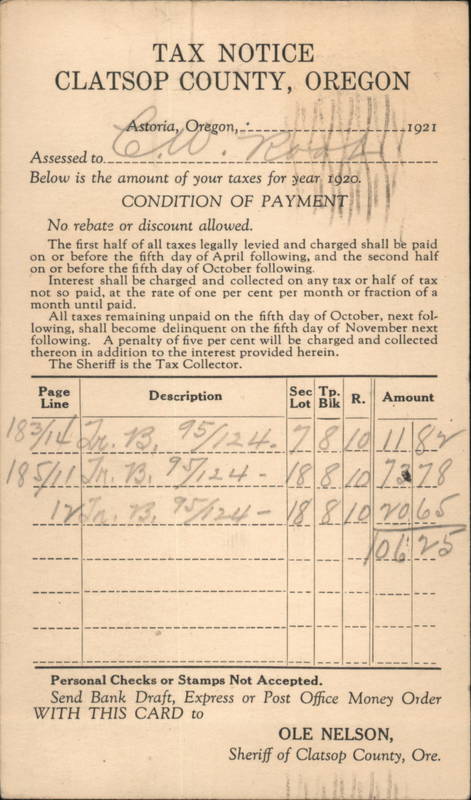 TAX NOTICE
CLATSOP COUNTY, OREGON
Astoria, Oregon, 1921
Assessed to C. W.
Below is the amount of your taxes for year 1920.
CONDITION OF PAYMENT
No rebate or discount allowed.
The first half of all taxes legally levied and charged shall be paid
on or before the fifth day of April following, and the second half
on or before the fifth day of October following.
Interest shall be charged and collected on any tax or half of tax
not so paid, at the rate of one per cent per month or fraction of a
month until paid.
All taxes remaining unpaid on the fifth day of October, next fol-
lowing, shall become delinquent on the fifth day of November next
following. A penalty of five per cent will be charged and collected
thereon in addition to the interest provided herein.
The Sheriff is the Tax Collector.
Page Line Description Sec Lot Tp. Blk R. Amount
183/14 Tr. B. 95/124 - 7 8 10 11 82
185/11 Tr. B. 95/124 - 18 8 10 73 78
12 Tr. B. 95/124 - 18 8 10 20 65
106 25
Personal Checks or Stamps Not Accepted.
Send Bank Draft, Express or Post Office Money Order
WITH THIS CARD to
OLE NELSON,
Sheriff of Clatsop County, Ore.